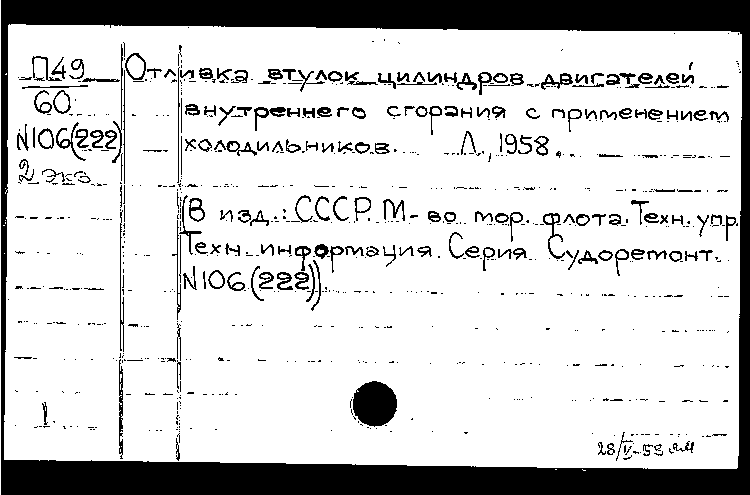 П49
60
N106(222)
2 экз
Отливка втулок цилиндров двигателей
внутреннего сгорания с применением
холодильников. Л., 1958.
(В изд.: СССР. М-во мор. флота. Техн. упр.
Техн. информация. Серия Судоремонт.
N106(222)).
1.
28/V-59